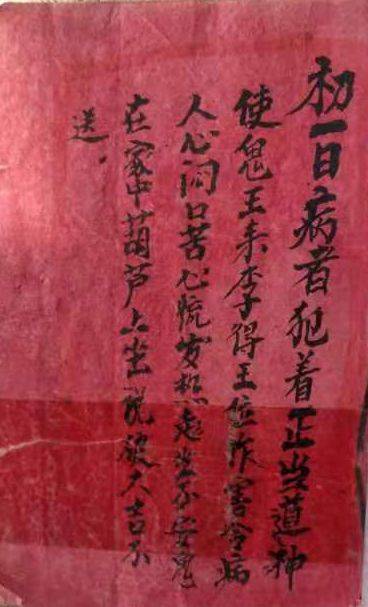 初一日病者犯着正当道神
使鬼王李得王位作害令病
人心闷口苦心慌发热起坐不安鬼
在家中葫芦上坐説破大吉不
送。